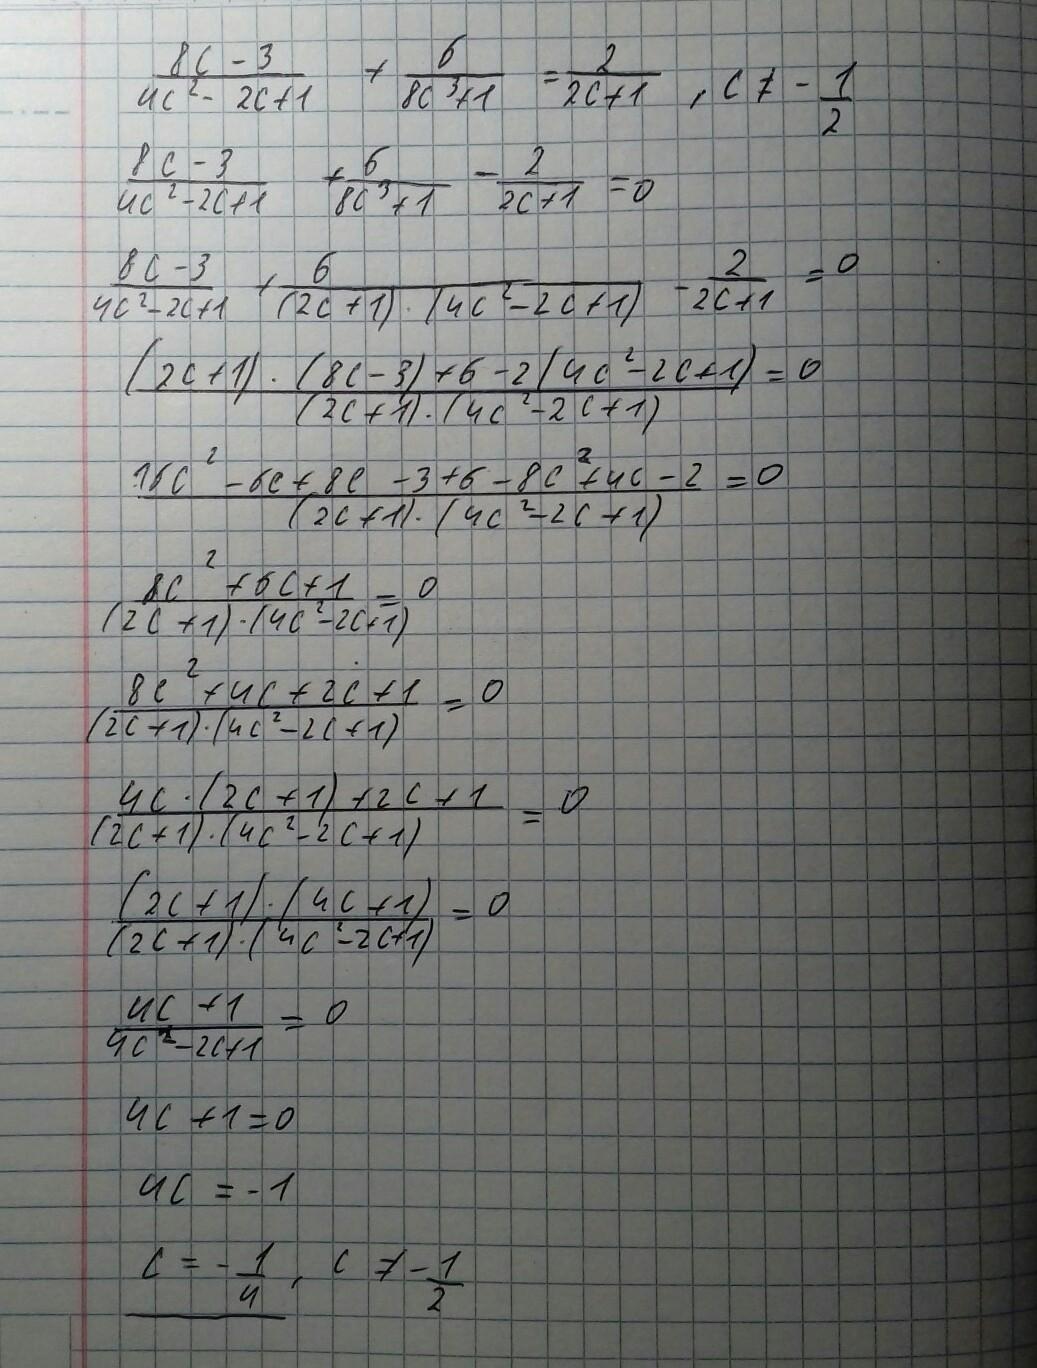 (8c - 3)/(4c² - 2c + 1) + 6/(8c³ + 1) = 2/(2c + 1) , c ≠ - 1/2
(8c - 3)/(4c² - 2c + 1) + 6/(8c³ + 1) - 2/(2c + 1) = 0
(8c - 3)/(4c² - 2c + 1) + 6/((2c + 1) · (4c² - 2c + 1)) - 2/(2c + 1) = 0
((2c + 1) · (8c - 3) + 6 - 2(4c² - 2c + 1))/((2c + 1) · (4c² - 2c + 1)) = 0
(16c² - 6c + 8c - 3 + 6 - 8c² + 4c - 2)/((2c + 1) · (4c² - 2c + 1)) = 0
(8c² + 6c + 1)/((2c + 1) · (4c² - 2c + 1)) = 0
(8c² + 4c + 2c + 1)/((2c + 1) · (4c² - 2c + 1)) = 0
(4c · (2c + 1) + 2c + 1)/((2c + 1) · (4c² - 2c + 1)) = 0
((2c + 1) · (4c + 1))/((2c + 1) · (4c² - 2c + 1)) = 0
(4c + 1)/(4c² - 2c + 1) = 0
4c + 1 = 0
4c = - 1
c = - 1/4 , c ≠ - 1/2